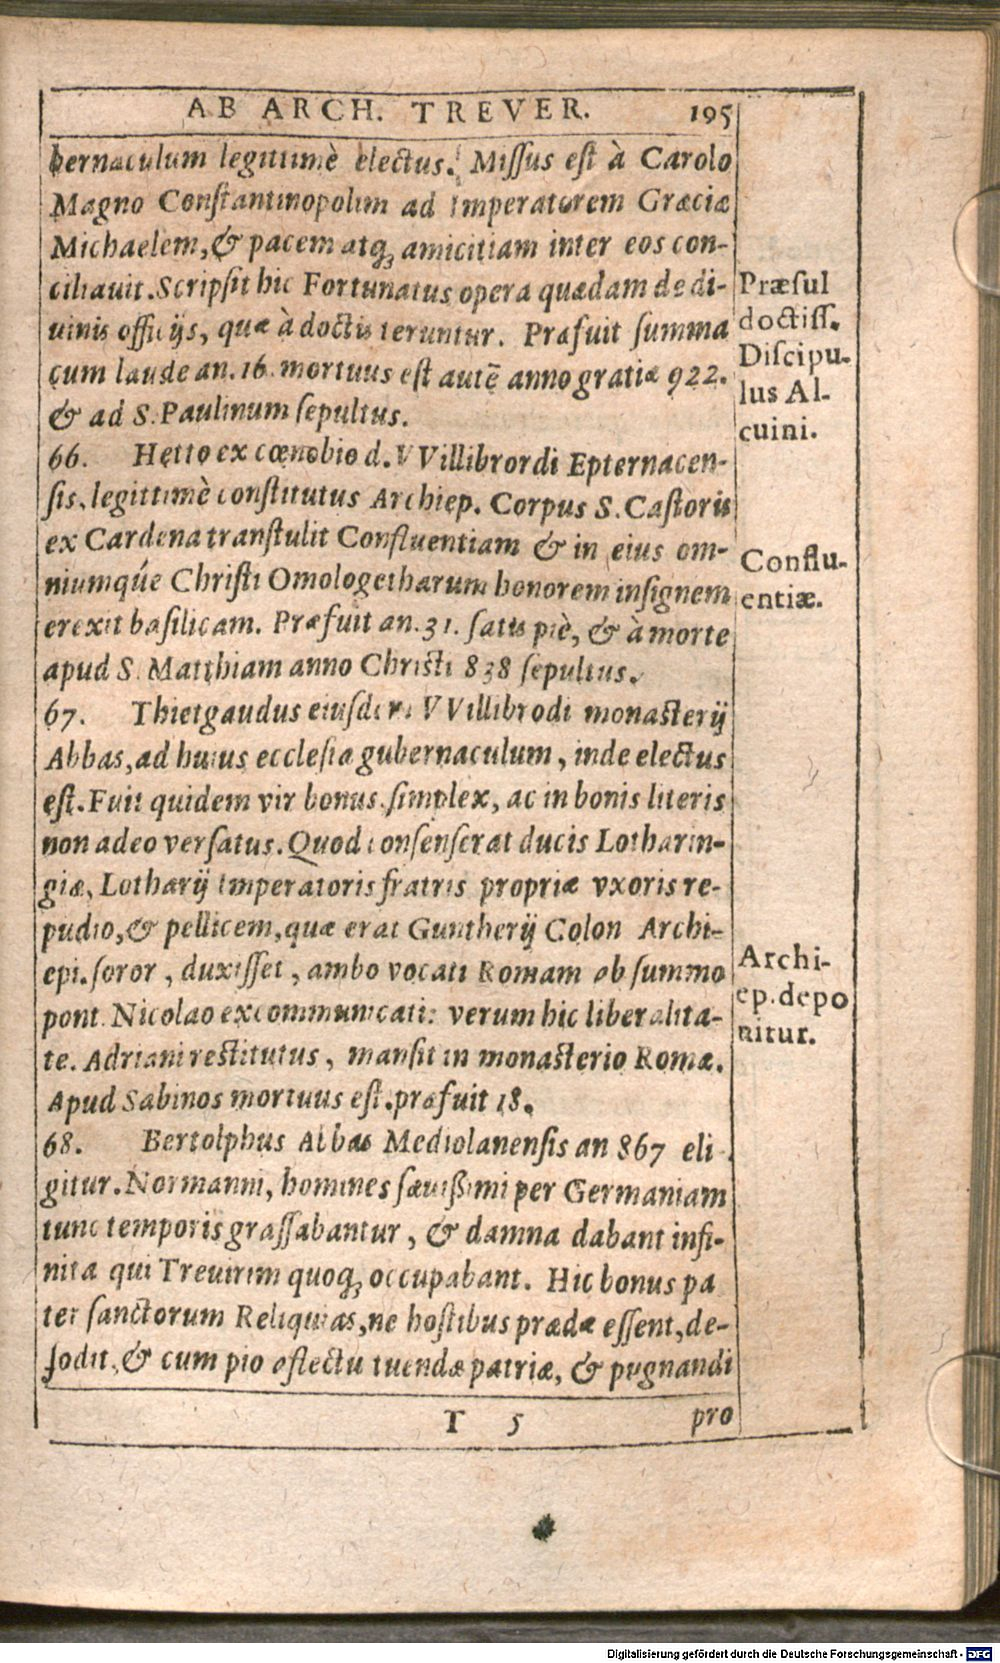 AB ARCH. TREVER. 195
bernaculum legittimè electus. Missus est à Carolo
Magno Constantinopolim ad Imperatorem Græciæ
Michaelem, & pacem atq; amicitiam inter eos con-
ciliauit. Scripsit hic Fortunatus opera quædam de di-
uinis officijs, quæ à doctis teruntur. Præfuit summa
cum laude an. 16. mortuus est autē anno gratiæ 922.
& ad S. Paulinum sepultus.
Præsul
doctiss.
Discipu-
lus Al-
cuini.
66. Hetto ex cœnobio d. VVillibrordi Epternacen-
sis, legittimè constitutus Archiep. Corpus S. Castoris
ex Cardena transtulit Confluentiam & in eius om-
niumqúe Christi Omologetharum honorem insignem
erexit basilicam. Præfuit an. 31. satis piè, & à morte
apud S. Matthiam anno Christi 838 sepultus.
Conflu-
entiæ.
67. Thietgaudus eiusdem VVillibrodi monasterij
Abbas, ad huius ecclesiæ gubernaculum, inde electus
est. Fuit quidem vir bonus, simplex, ac in bonis literis
non adeo versatus. Quod consenserat ducis Lotharin-
giæ, Lotharij Imperatoris fratris propriæ vxoris re-
pudio, & pellicem, quæ erat Guntherij Colon Archi-
epi. soror, duxisset, ambo vocati Romam ab summo
pont. Nicolao excommunicati: verum hic liberalita-
te. Adriani restitutus, mansit in monasterio Romæ.
Apud Sabinos mortuus est. præfuit 18.
Archi-
ep. depo
nitur.
68. Bertolphus Abbas Mediolanensis an 867 eli-
gitur. Normanni, homines sæuißimi per Germaniam
tunc temporis grassabantur, & damna dabant infi-
nita qui Treuirim quoq; occupabant. Hic bonus pa
ter sanctorum Reliquias, ne hostibus prædæ essent, de-
fodit, & cum pio affectu tuendæ patriæ, & pugnandi
T 5 pro
Digitalisierung gefördert durch die Deutsche Forschungsgemeinschaft - DFG